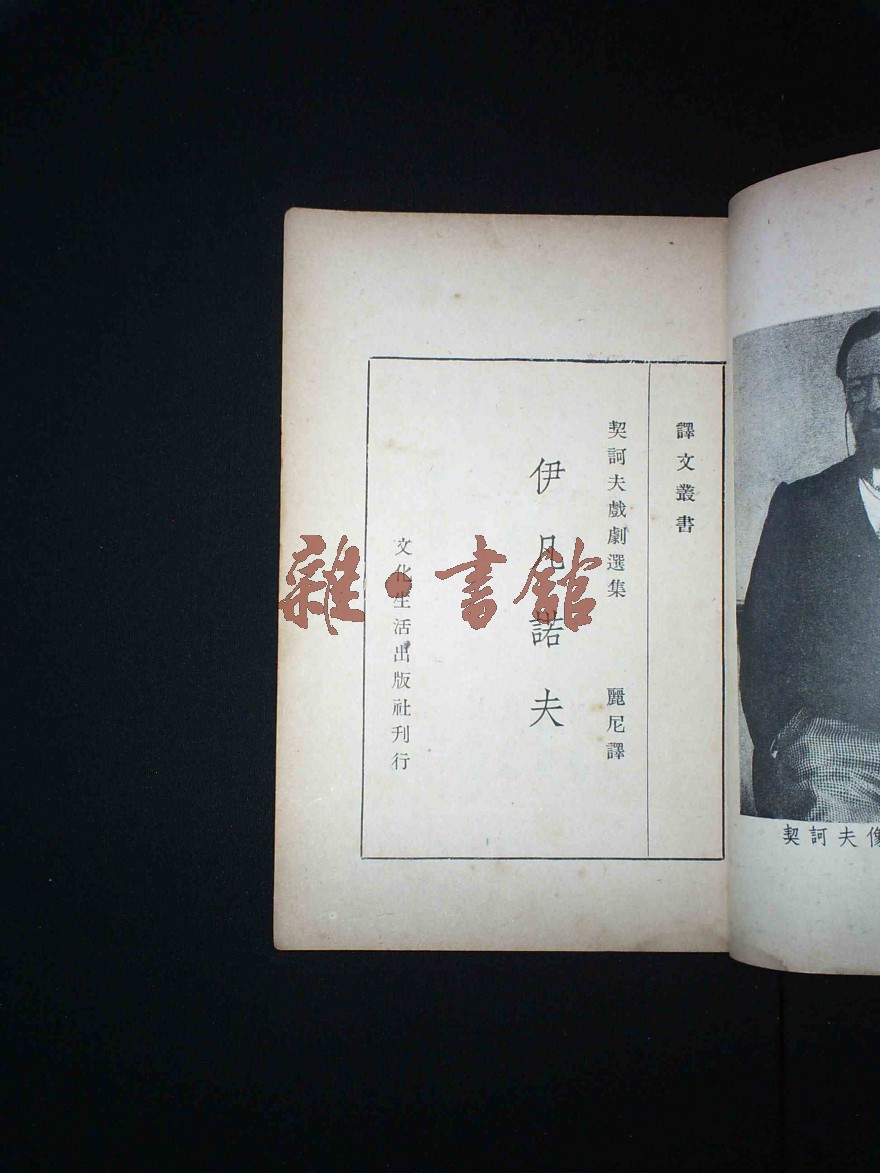 譯文叢書
契訶夫戲劇選集 麗尼譯
伊凡諾夫
文化生活出版社刊行
契訶夫像
雜·書館